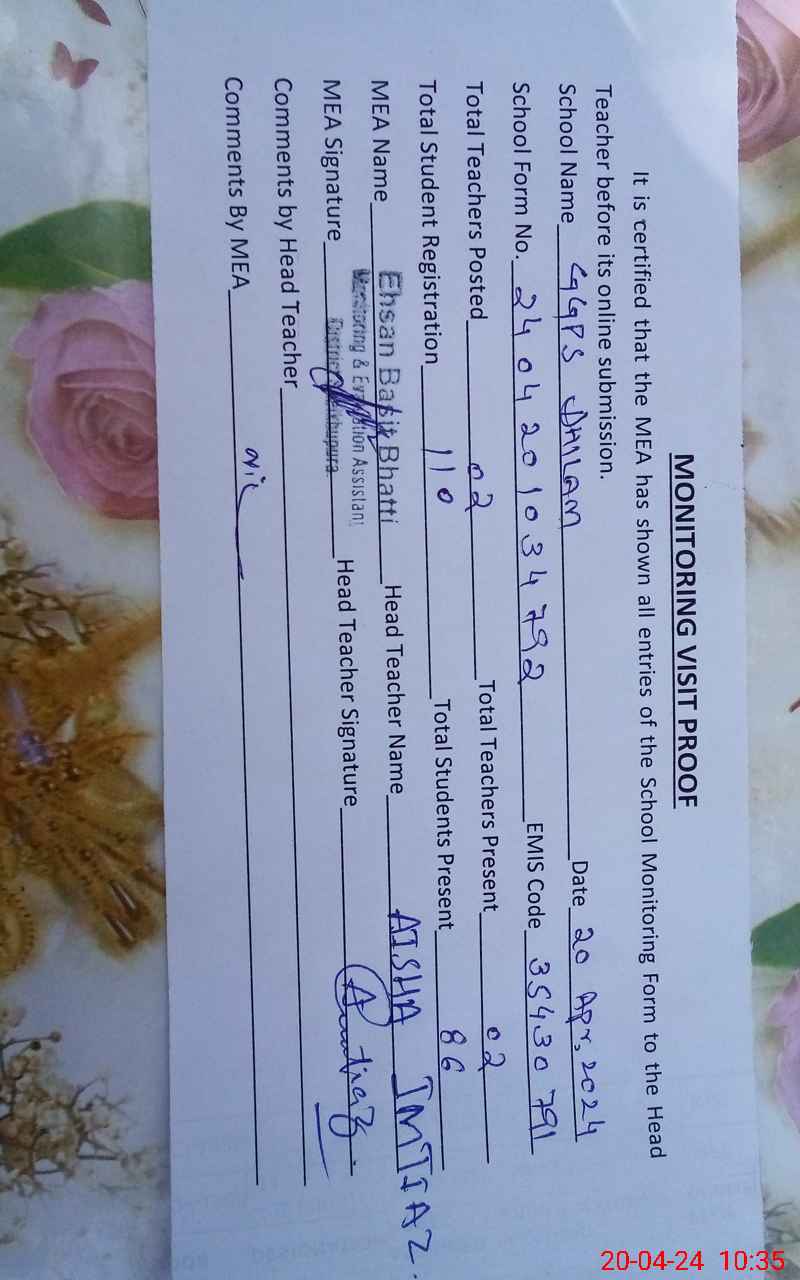 MONITORING VISIT PROOF
It is certified that the MEA has shown all entries of the School Monitoring Form to the Head
Teacher before its online submission.
School Name GGPS DHILAM Date 20 Apr, 2024
School Form No. 2404201034792 EMIS Code 35430791
Total Teachers Posted 02 Total Teachers Present 02
Total Student Registration 110 Total Students Present 86
MEA Name Ehsan Basit Bhatti Head Teacher Name AISHA IMTIAZ.
Monitoring & Evaluation Assistant
District Sheikhupura
MEA Signature Head Teacher Signature
Comments by Head Teacher
Comments By MEA Nil
20-04-24 10:35